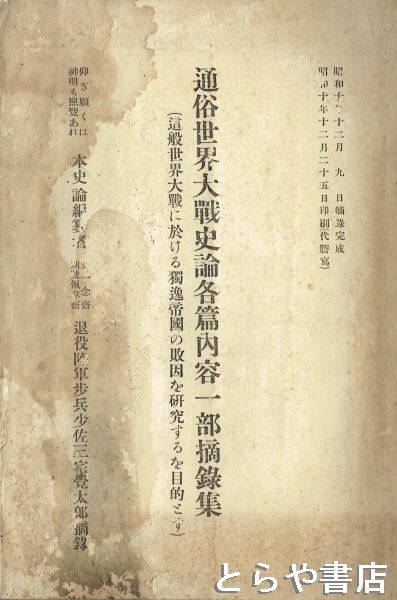 昭和十年十二月　九　日摘錄完成
昭和十年十二月二十五日印刷(代謄寫)
通俗世界大戰史論各篇內容一部摘錄集
(這般世界大戰に於ける獨逸帝國の敗因を研究するを目的とす)
仰ぎ願くは
神明も照覽あれ
本史論編纂者
一念齋
退役陸軍步兵少佐三宅覺太郎摘錄
とらや書店